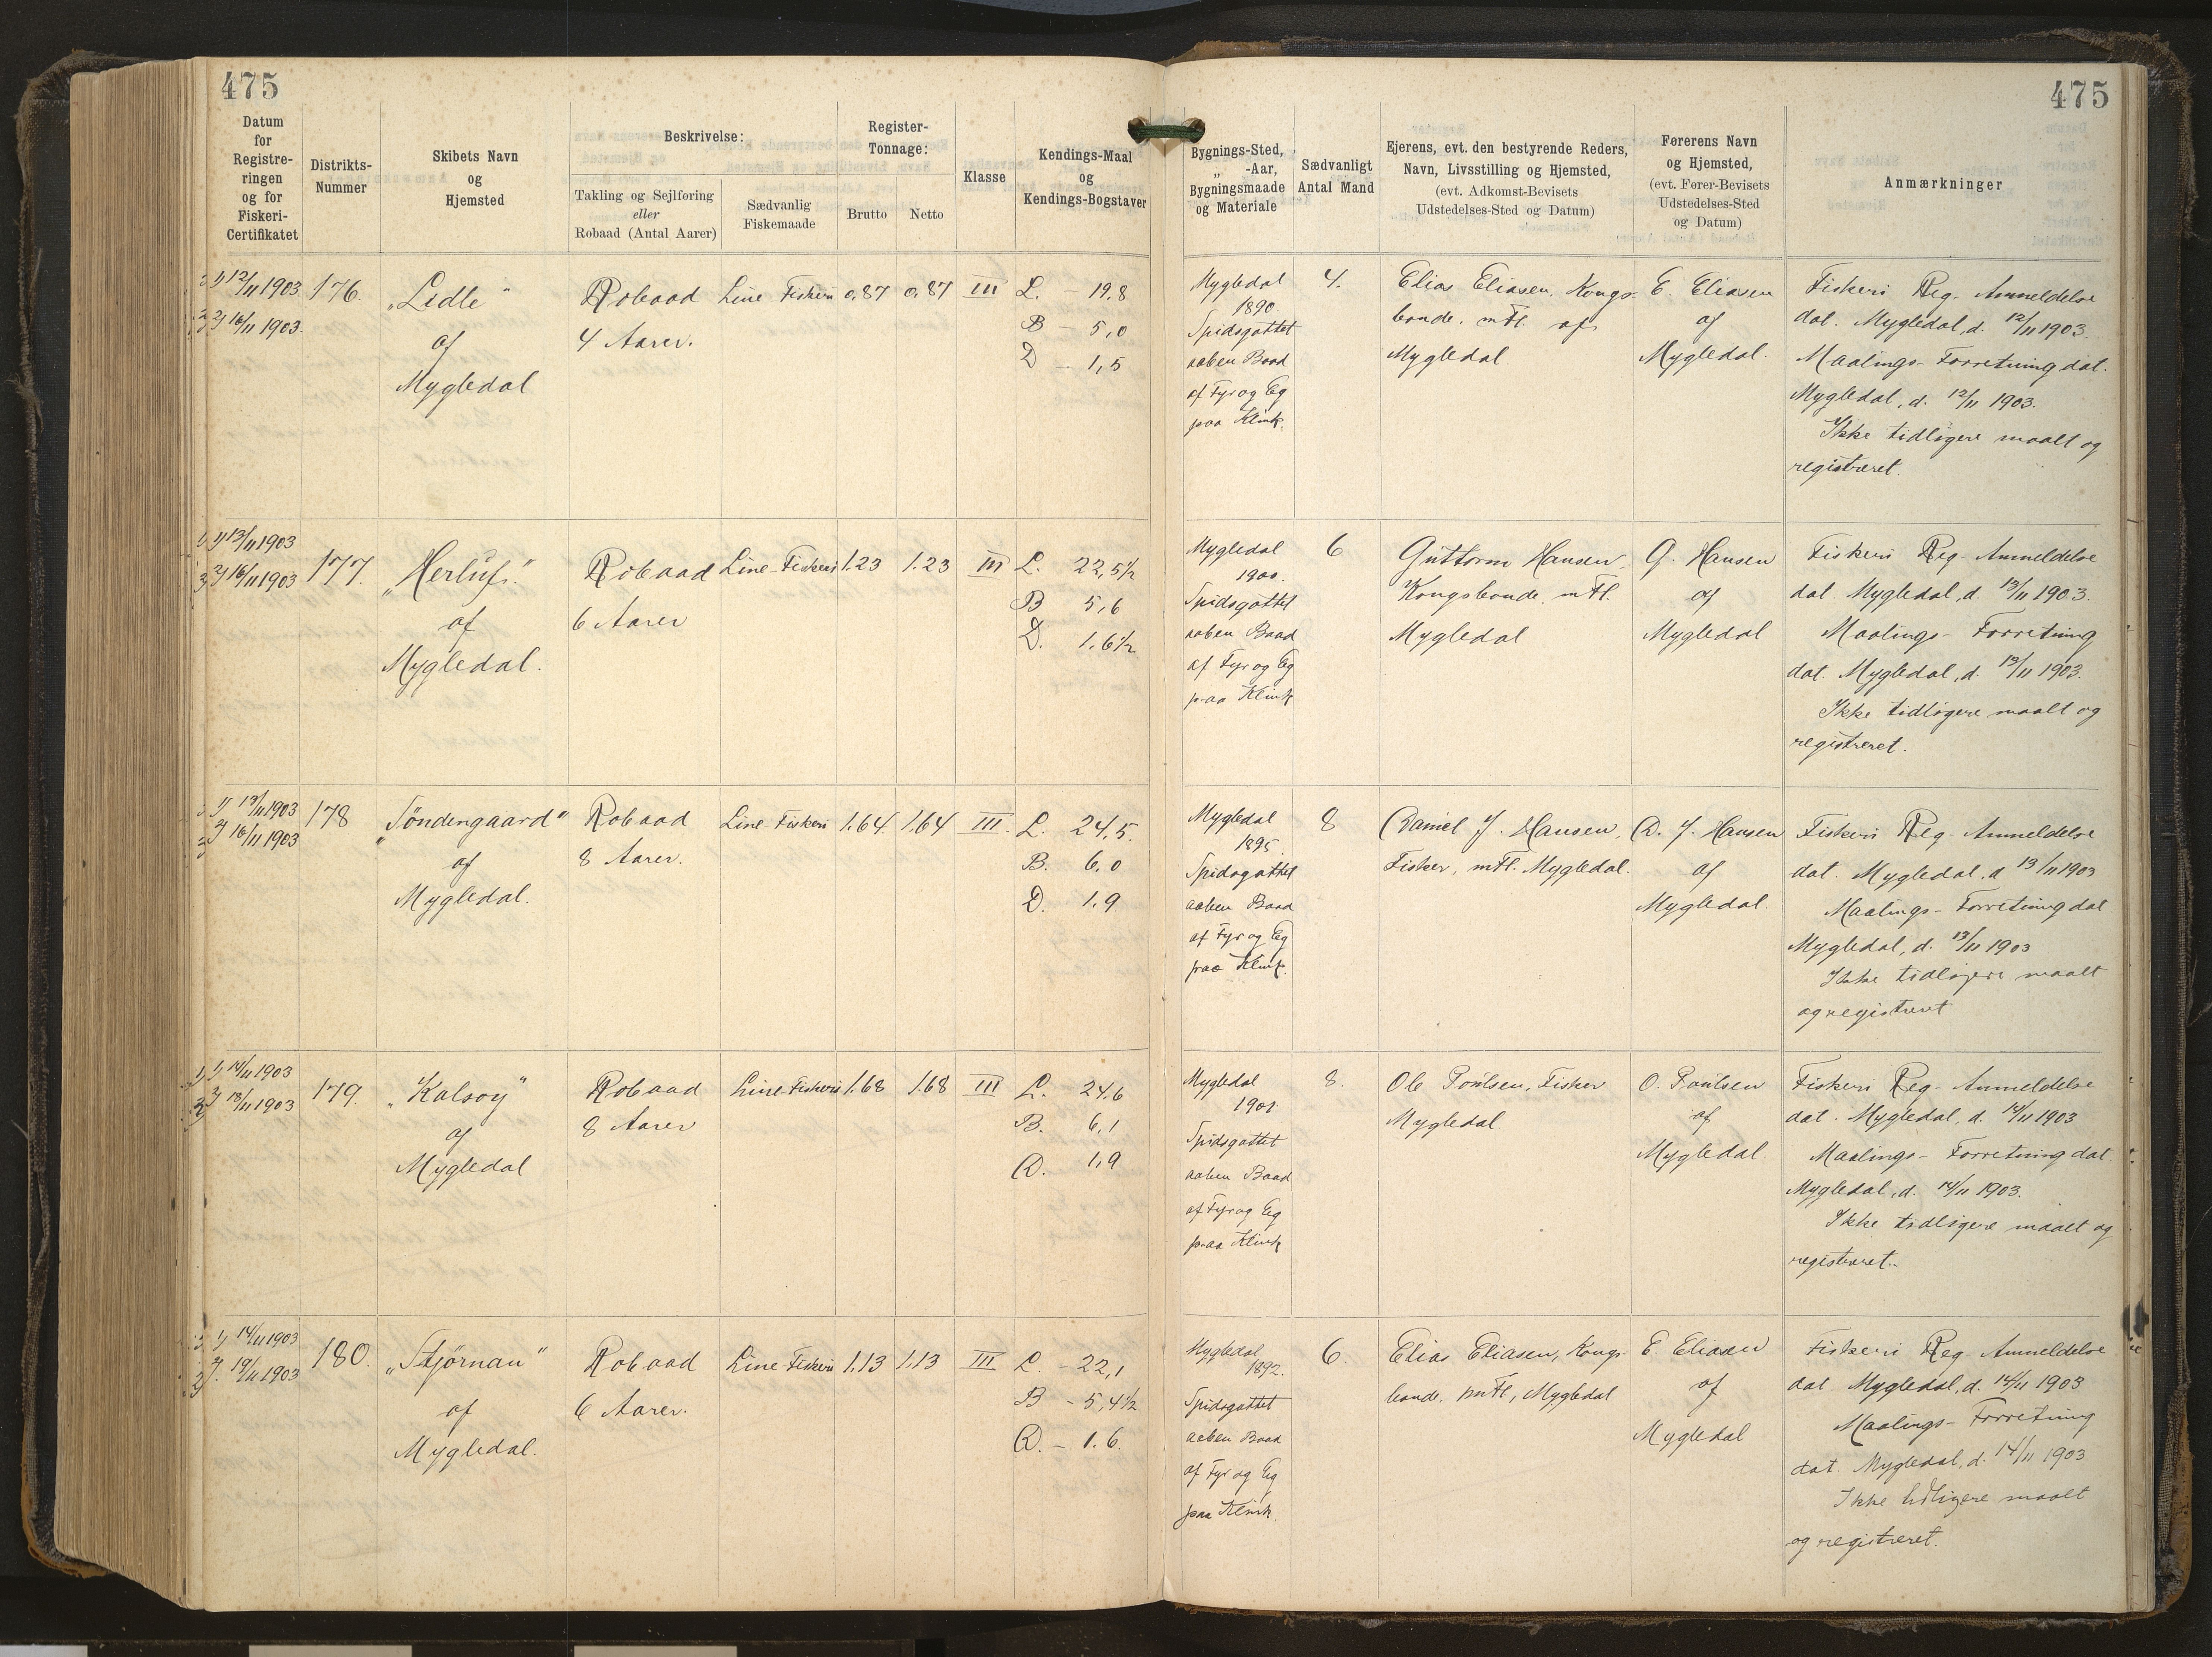 475
475
Datum
for
Registre-
ringen
og for
Fiskeri-
Certifikatet
Distrikts-
Nummer
Skibets Navn
og
Hjemsted
Beskrivelse:
Takling og Sejlføring
eller
Robaad (Antal Aarer)
Sædvanlig
Fiskemaade
Register-
Tonnage:
Brutto
Netto
Klasse
Kendings-Maal
og
Kendings-Bogstaver
Bygnings-Sted,
„ -Aar,
Bygningsmaade
og Materiale
Sædvanligt
Antal Mand
Ejerens, evt. den bestyrende Reders,
Navn, Livsstilling og Hjemsted,
(evt. Adkomst-Bevisets
Udstedelses-Sted og Datum)
Førerens Navn
og Hjemsted,
(evt. Fører-Bevisets
Udstedelses-Sted
og Datum)
Anmærkninger
1) 12/11 1903
2) 16/11 1903.
176.
„Lidle"
af
Mygledal
Robaad
4 Aarer.
Line Fiskeri
0,87
0,87
III
L. – 19,8
B – 5,0
D – 1,5
Mygledal
1890
Spidsgattet
aaben Baad
af Fyr og Eg
paa Klink.
4.
Elias Eliasen, Kongs-
bonde. m Fl. af
Mygledal
E. Eliasen
af
Mygledal.
Fiskeri Reg. Anmeldelse
dat. Mygledal, d. 12/11 1903.
Maalings-Forretning dat.
Mygledal, d. 12/11 1903.
Ikke tidligere maalt og
registreret.
1) 13/11 1903
2) 16/11 1903
177.
„Herluf."
af
Mygledal.
Robaad
6 Aarer
Line-Fiskeri
1.23
1.23
III
L. 22,5½
B 5,6
D. 1,6½
Mygledal
1900.
Spidsgattet
aaben Baad
af Fyr og Eg
paa Klink
6
Guttorm Hansen,
Kongsbonde. m Fl.
Mygledal
G. Hansen
af
Mygledal
Fiskeri Reg. Anmeldelse
dat. Mygledal, d. 13/11 1903.
Maalings-Forretning
dat. Mygledal, d. 13/11 1903.
Ikke tidligere maalt og
registreret.
1) 13/11 1903
2) 16/11 1903
178
„Töndengaard"
af
Mygledal.
Robaad
8 Aarer.
Line Fiskeri
1.64
1.64
III.
L. 24,5.
B. 6,0
D. 1,9
Mygledal
1895.
Spidsgattet
aaben Baad
af Fyr og Eg
paa Klink.
8
Daniel J. Hansen,
Fisker, m Fl. Mygledal.
D. J. Hansen
af
Mygledal.
Fiskeri Reg. Anmeldelse
dat. Mygledal, d 13/11 1903
Maalings-Forretning dat
Mygledal, d. 13/11 1903
Ikke tidligere maalt
og registreret
1) 14/11 1903
2) 18/11 1903
179.
„Kalsoy"
af
Mygledal
Robaad
8 Aarer
Line-Fiskeri
1.68
1.68
III
L. 24,6
B. 6,1
D. 1,9
Mygledal
1901.
Spidsgattet
aaben Baad
af Fyr og Eg
paa Klink
8.
Ole Poulsen, Fisker
Mygledal
O. Poulsen
af
Mygledal.
Fiskeri Reg. Anmeldelse
dat. Mygledal, d. 14/11 1903
Maalings-Forretning dat.
Mygledal, d. 14/11 1903.
Ikke tidligere maalt og
registreret.
1) 14/11 1903
2) 19/11 1903
180.
„Stjörnan"
af
Mygledal.
Robaad
6 Aarer.
Line Fiskeri
1.13
1.13
III
L. – 22,1
B – 5,4½
D. – 1.6.
Mygledal
1892.
Spidsgattet
aaben Baad
af Fyr og Eg
paa Klink.
6.
Elias Eliasen, Kongs-
bonde. m Fl, Mygledal
E. Eliasen
af
Mygledal
Fiskeri Reg. Anmeldelse
dat. Mygledal, d. 14/11 1903
Maalings-Forretning
dat. Mygledal, d. 14/11 1903
Ikke tidligere maalt
og registreret.